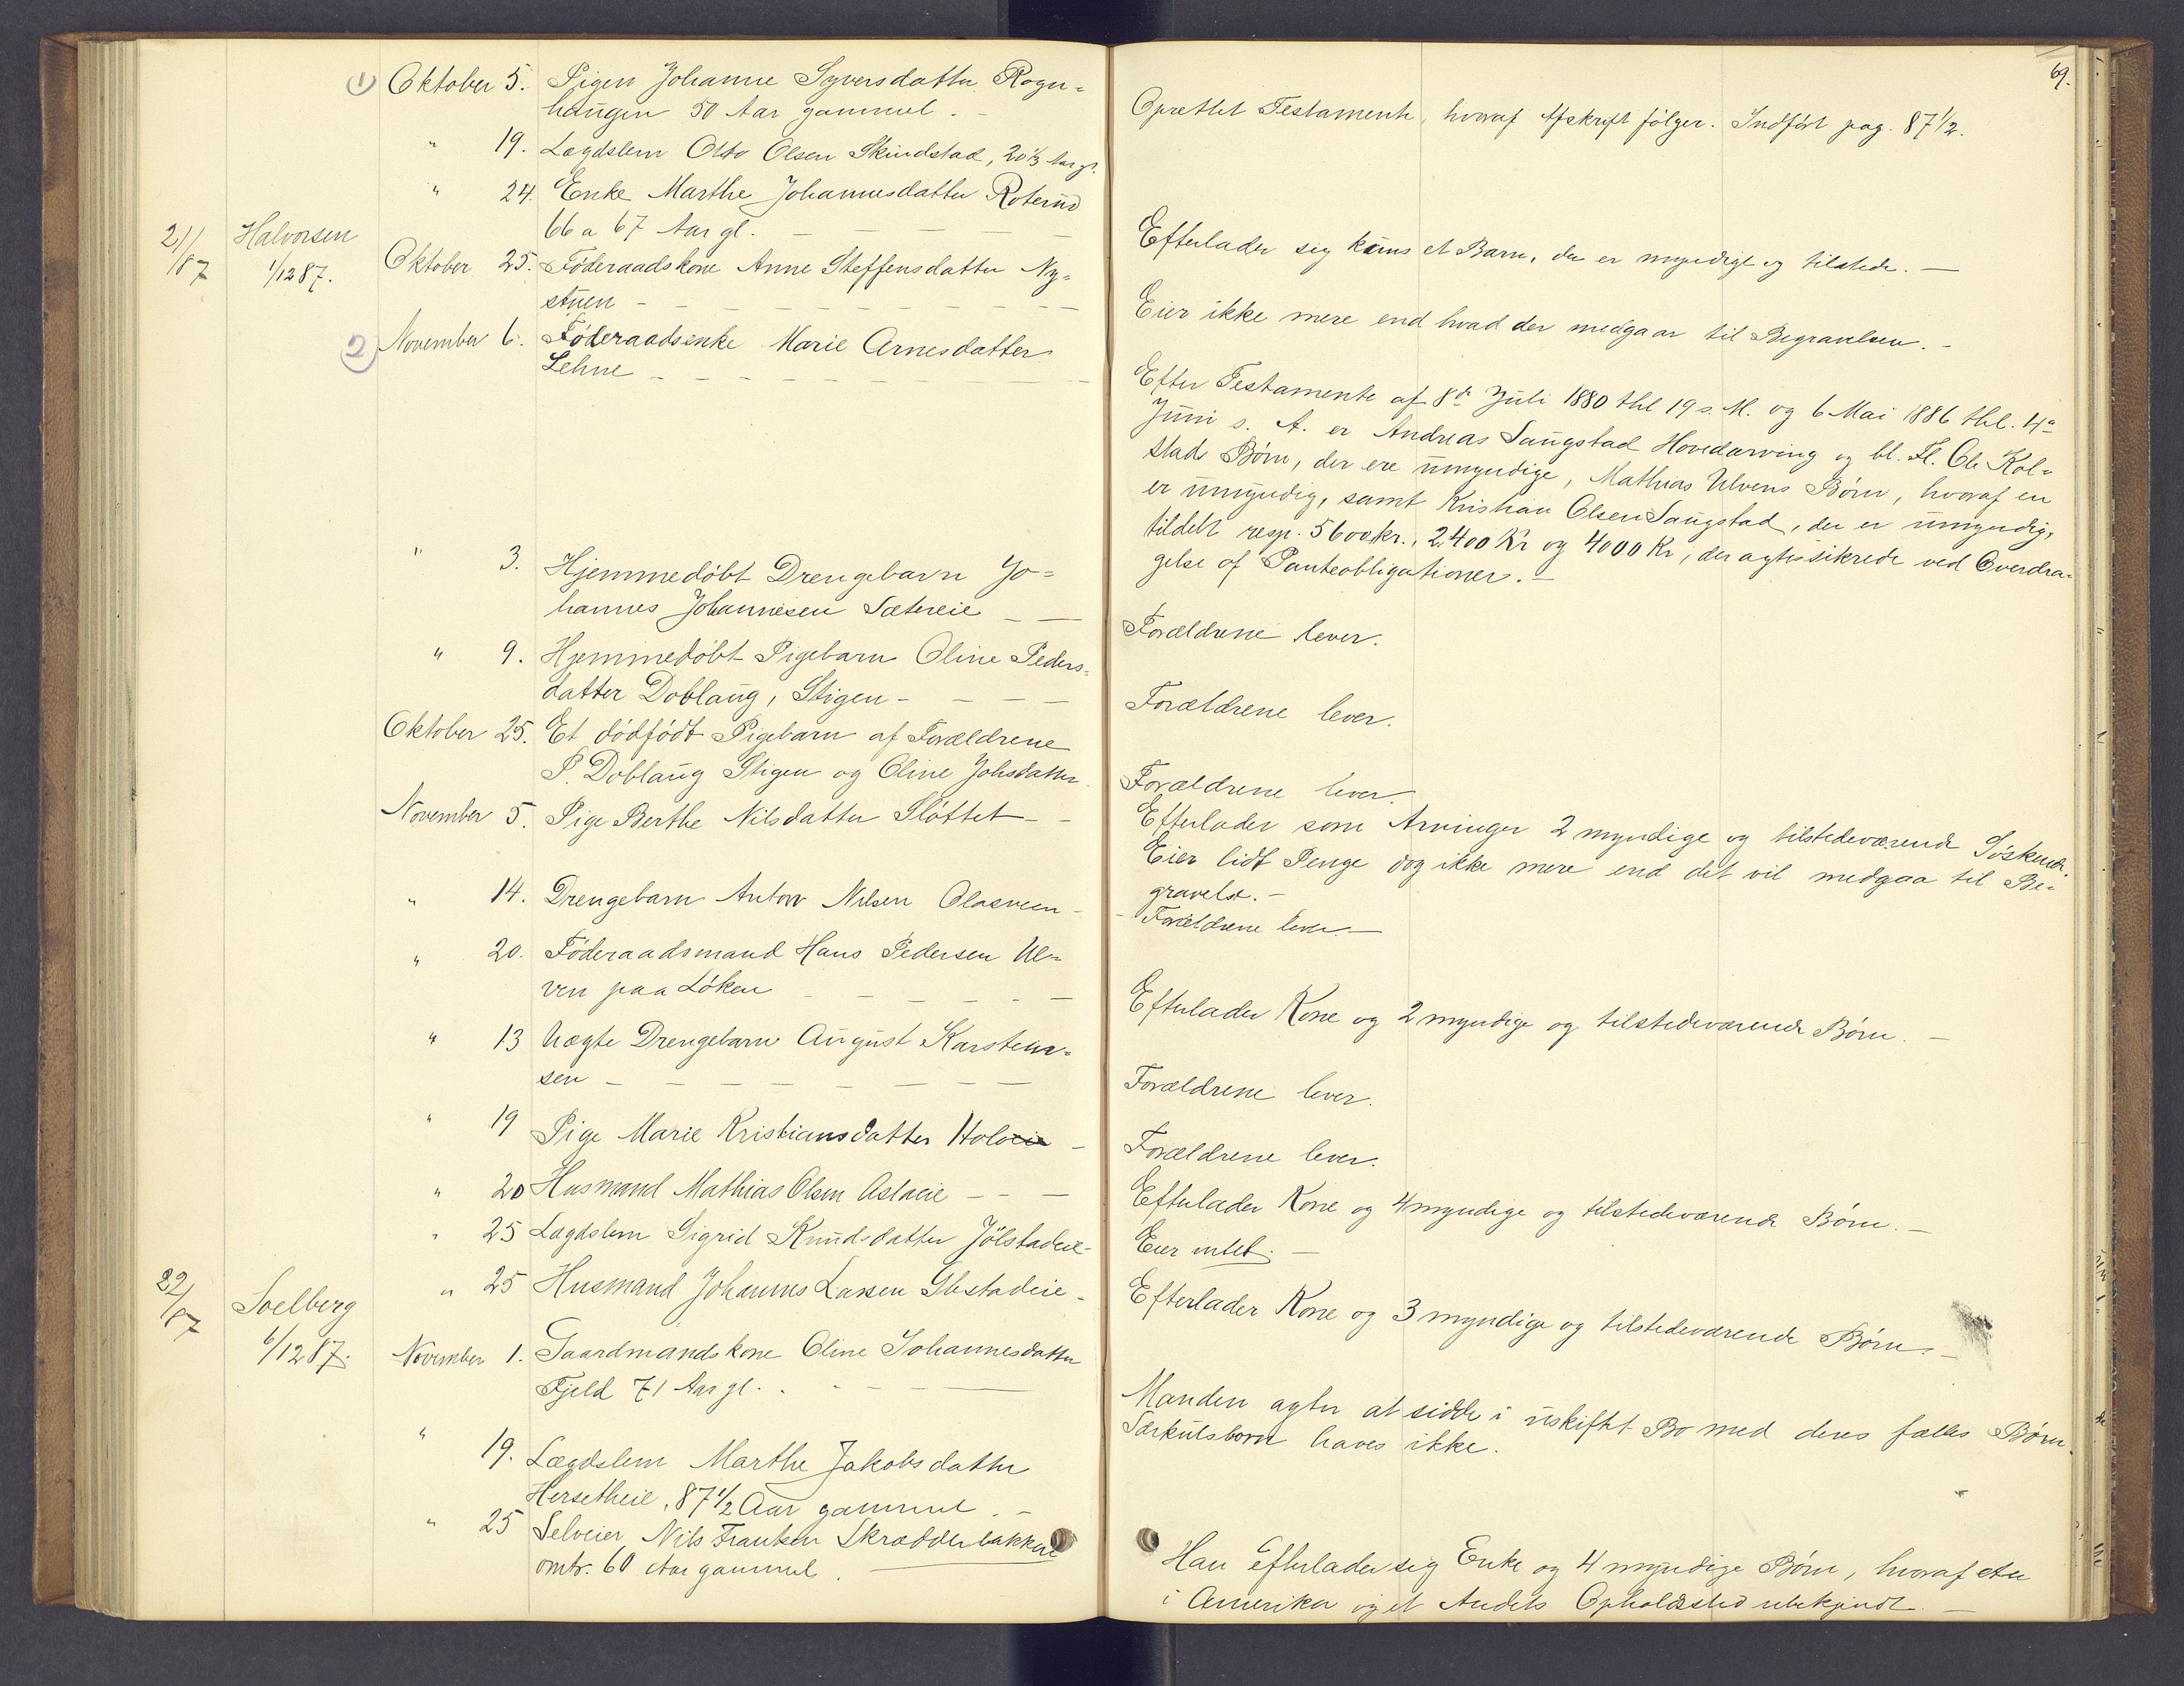 69.
① Oktober 5. Pigen Johanne Syversdatter Rogn-
haugen 50 Aar gammel.
Oprettet Testamente, hvoraf Afskrift følger. Indført pag. 87 1/2.
" 19. Lægdslem Otto Olsen Skindstad, 20 1/3 Aar gl.
" 24. Enke Marthe Johannesdatter Roterud
66 a 67 Aar gl. —
Efterlader sig kuns et Barn, der er myndigt og tilstede. —
21/87 Halvorsen
1/12 87.
Oktober 25. Føderaadskone Anne Steffensdatter Ny-
stuen —
Eier ikke mere end hvad der medgaar til Begravelsen. —
② November 6. Føderaadsenke Marie Arnesdatter
Lehne —
Efter Testamente af 8de Juli 1880 thl 19 s. M. og 6 Mai 1886 thl. 4de
Juni s. A. er Andreas Saugstad Hovedarving og bl. Fl. Ole Kol-
stads Børn, der ere umyndige, Mathias Ulvens Børn, hvoraf en
er umyndig, samt Kristian Olsen Saugstad, der er umyndig,
tildelt resp. 5600 kr., 2.400 Kr og 4000 Kr, der agtes sikrede ved Overdra-
gelse af Panteobligationer. —
" 3. Hjemmedøbt Drengebarn Jo-
hannes Johannesen Sætereie —
Forældrene lever.
" 9. Hjemmedøbt Pigebarn Oline Peders-
datter Doblaug, Stigen —
Forældrene lever.
Oktober 25. Et dødfødt Pigebarn af Forældrene
P. Doblaug Stigen og Oline Johsdatter.
Forældrene lever.
November 5. Pige Berthe Nilsdatter Slottet —
Efterlader som Arvinger 2 myndige og tilstedeværende Søskende.
Eier lidt Penge dog ikke mere end det vil medgaa til Be-
gravelse. —
" 14. Drengebarn Anton Nilsen Olasveen —
— Forældrene lever. —
" 20. Føderaadsmand Hans Pedersen Ul-
ven paa Løken —
Efterlader Kone og 2 myndige og tilstedeværende Børn. —
" 13 Uægte Drengebarn August Karsten-
sen —
Forældrene lever.
" 19 Pige Marie Kristiansdatter Holoeie —
Forældrene lever.
" 20 Husmand Mathias Olsen Aslaeie —
Efterlader Kone og 4 myndige og tilstedeværende Børn. —
" 25 Lægdslem Sigrid Knudsdatter Jølstadeie —
Eier intet. —
" 25 Husmand Johannes Larsen Gbstadeie —
Efterlader Kone og 3 myndige og tilstedeværende Børn. —
22/87 Soelberg
6/12 87.
November 1. Gaardmandskone Oline Johannesdatter
Fjeld 71 Aar gl. —
Manden agter at sidde i uskiftet Bo med deres fælles Børn.
Særkulsbørn haves ikke.
" 19. Lægdslem Marthe Jakobsdatter
Hersetheie, 87 1/2 Aar gammel. —
" 25 Selveier Nils Frantsen Skrædderbakken
omtr. 60 Aar gammel. —
Han efterlader sig Enke og 4 myndige Børn, hvoraf etn
i Amerika og et Andets Opholdssted ubekjendt. —